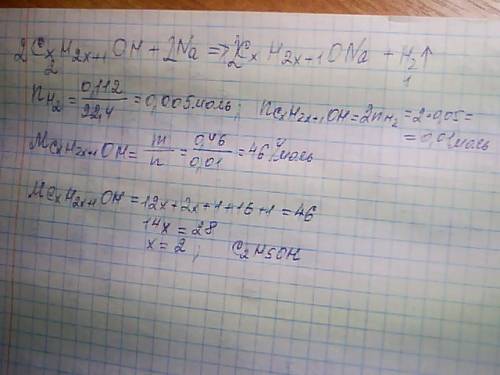 2CxH2x+1OH + 2Na => 2CxH2x+1ONa + H2↑
2 1
nH2 = 0,112/22,4 = 0,005моль; nCxH2x+1OH = 2nH2 = 2·0,05=
= 0,01моль
MCxH2x+1OH = m/n = 0,46/0,01 = 46 г/моль
MCxH2x+1OH = 12x+2x+1+16+1 = 46
14x = 28
x = 2; C2H5OH